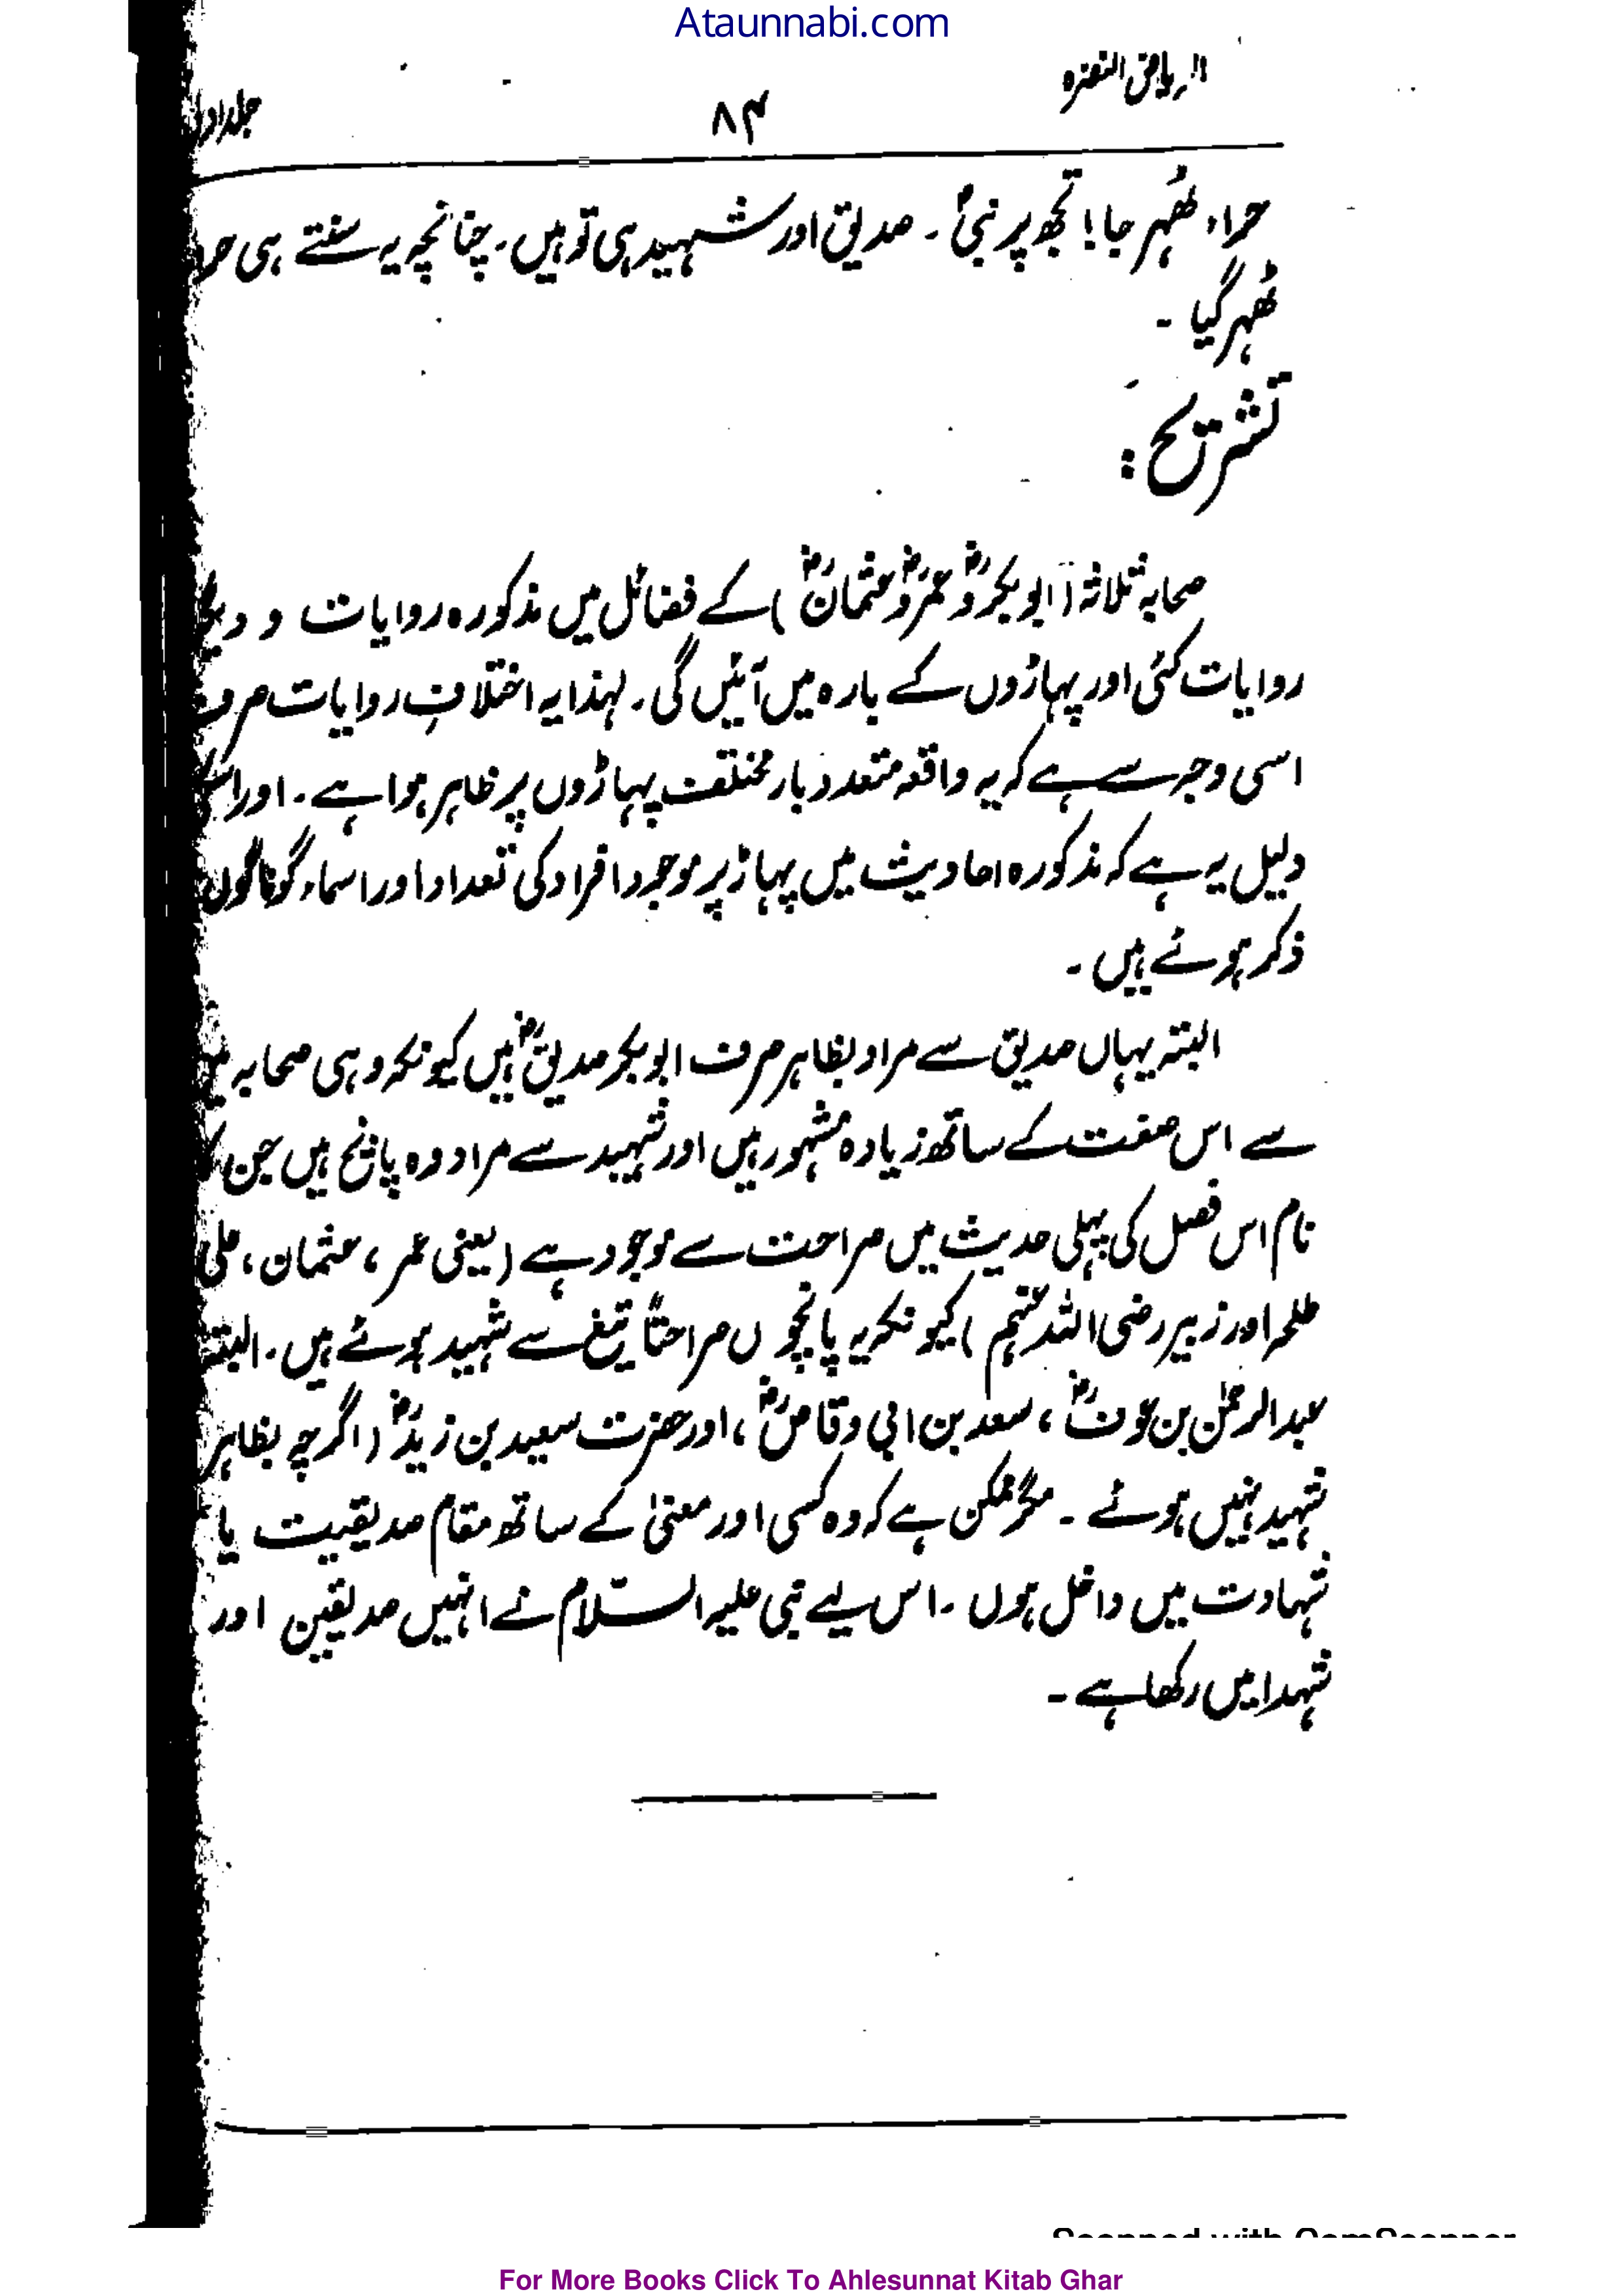 Ataunnabi.com
الریاض النضرہ
۸۴
جلد اول
حراء ٹھہر جا! تجھ پر نبیؐ ۔ صدیق اور شہید ہی تو ہیں ۔ چنانچہ یہ سنتے ہی حرا
ٹھہر گیا ۔
تشریح :
صحابہ ثلاثہ (ابوبکرؓ و عمرؓ و عثمانؓ) کے فضائل میں مذکورہ روایات و دیگر
روایات کئی اور پہاڑوں کے بارہ میں آئیں گی ۔ لہذا یہ اختلافِ روایات صرف
اسی وجہ سے ہے کہ یہ واقعہ متعدد بار مختلف پہاڑوں پر ظاہر ہوا ہے ۔ اور اس کی
دلیل یہ ہے کہ مذکورہ احادیث میں پہاڑ پر موجود افراد کی تعداد اور اسماء گوناگوں
ذکر ہوئے ہیں ۔
البتہ یہاں صدیق سے مراد بظاہر صرف ابوبکر صدیقؓ ہیں کیونکہ وہی صحابہ میں
سے اس صفت کے ساتھ زیادہ مشہور ہیں اور شہید سے مراد وہ پانچ ہیں جن کا
نام اس فصل کی پہلی حدیث میں صراحت سے موجود ہے (یعنی عمر ، عثمان ، علی
طلحہ اور زبیر رضی اللہ عنہم) کیونکہ یہ پانچوں صراحتاً تیغ سے شہید ہوئے ہیں ۔ البتہ
عبدالرحمٰن بن عوفؓ ، سعد بن ابی وقاصؓ ، اور حضرت سعید بن زیدؓ (اگرچہ بظاہر
شہید نہیں ہوئے ۔ مگر ممکن ہے کہ وہ کسی اور معنیٰ کے ساتھ مقام صدیقیت یا
شہادت میں داخل ہوں ۔ اس لیے نبی علیہ السّلام نے انہیں صدیقین اور
شہدا میں رکھا ہے ۔
Scanned with CamScanner
For More Books Click To Ahlesunnat Kitab Ghar